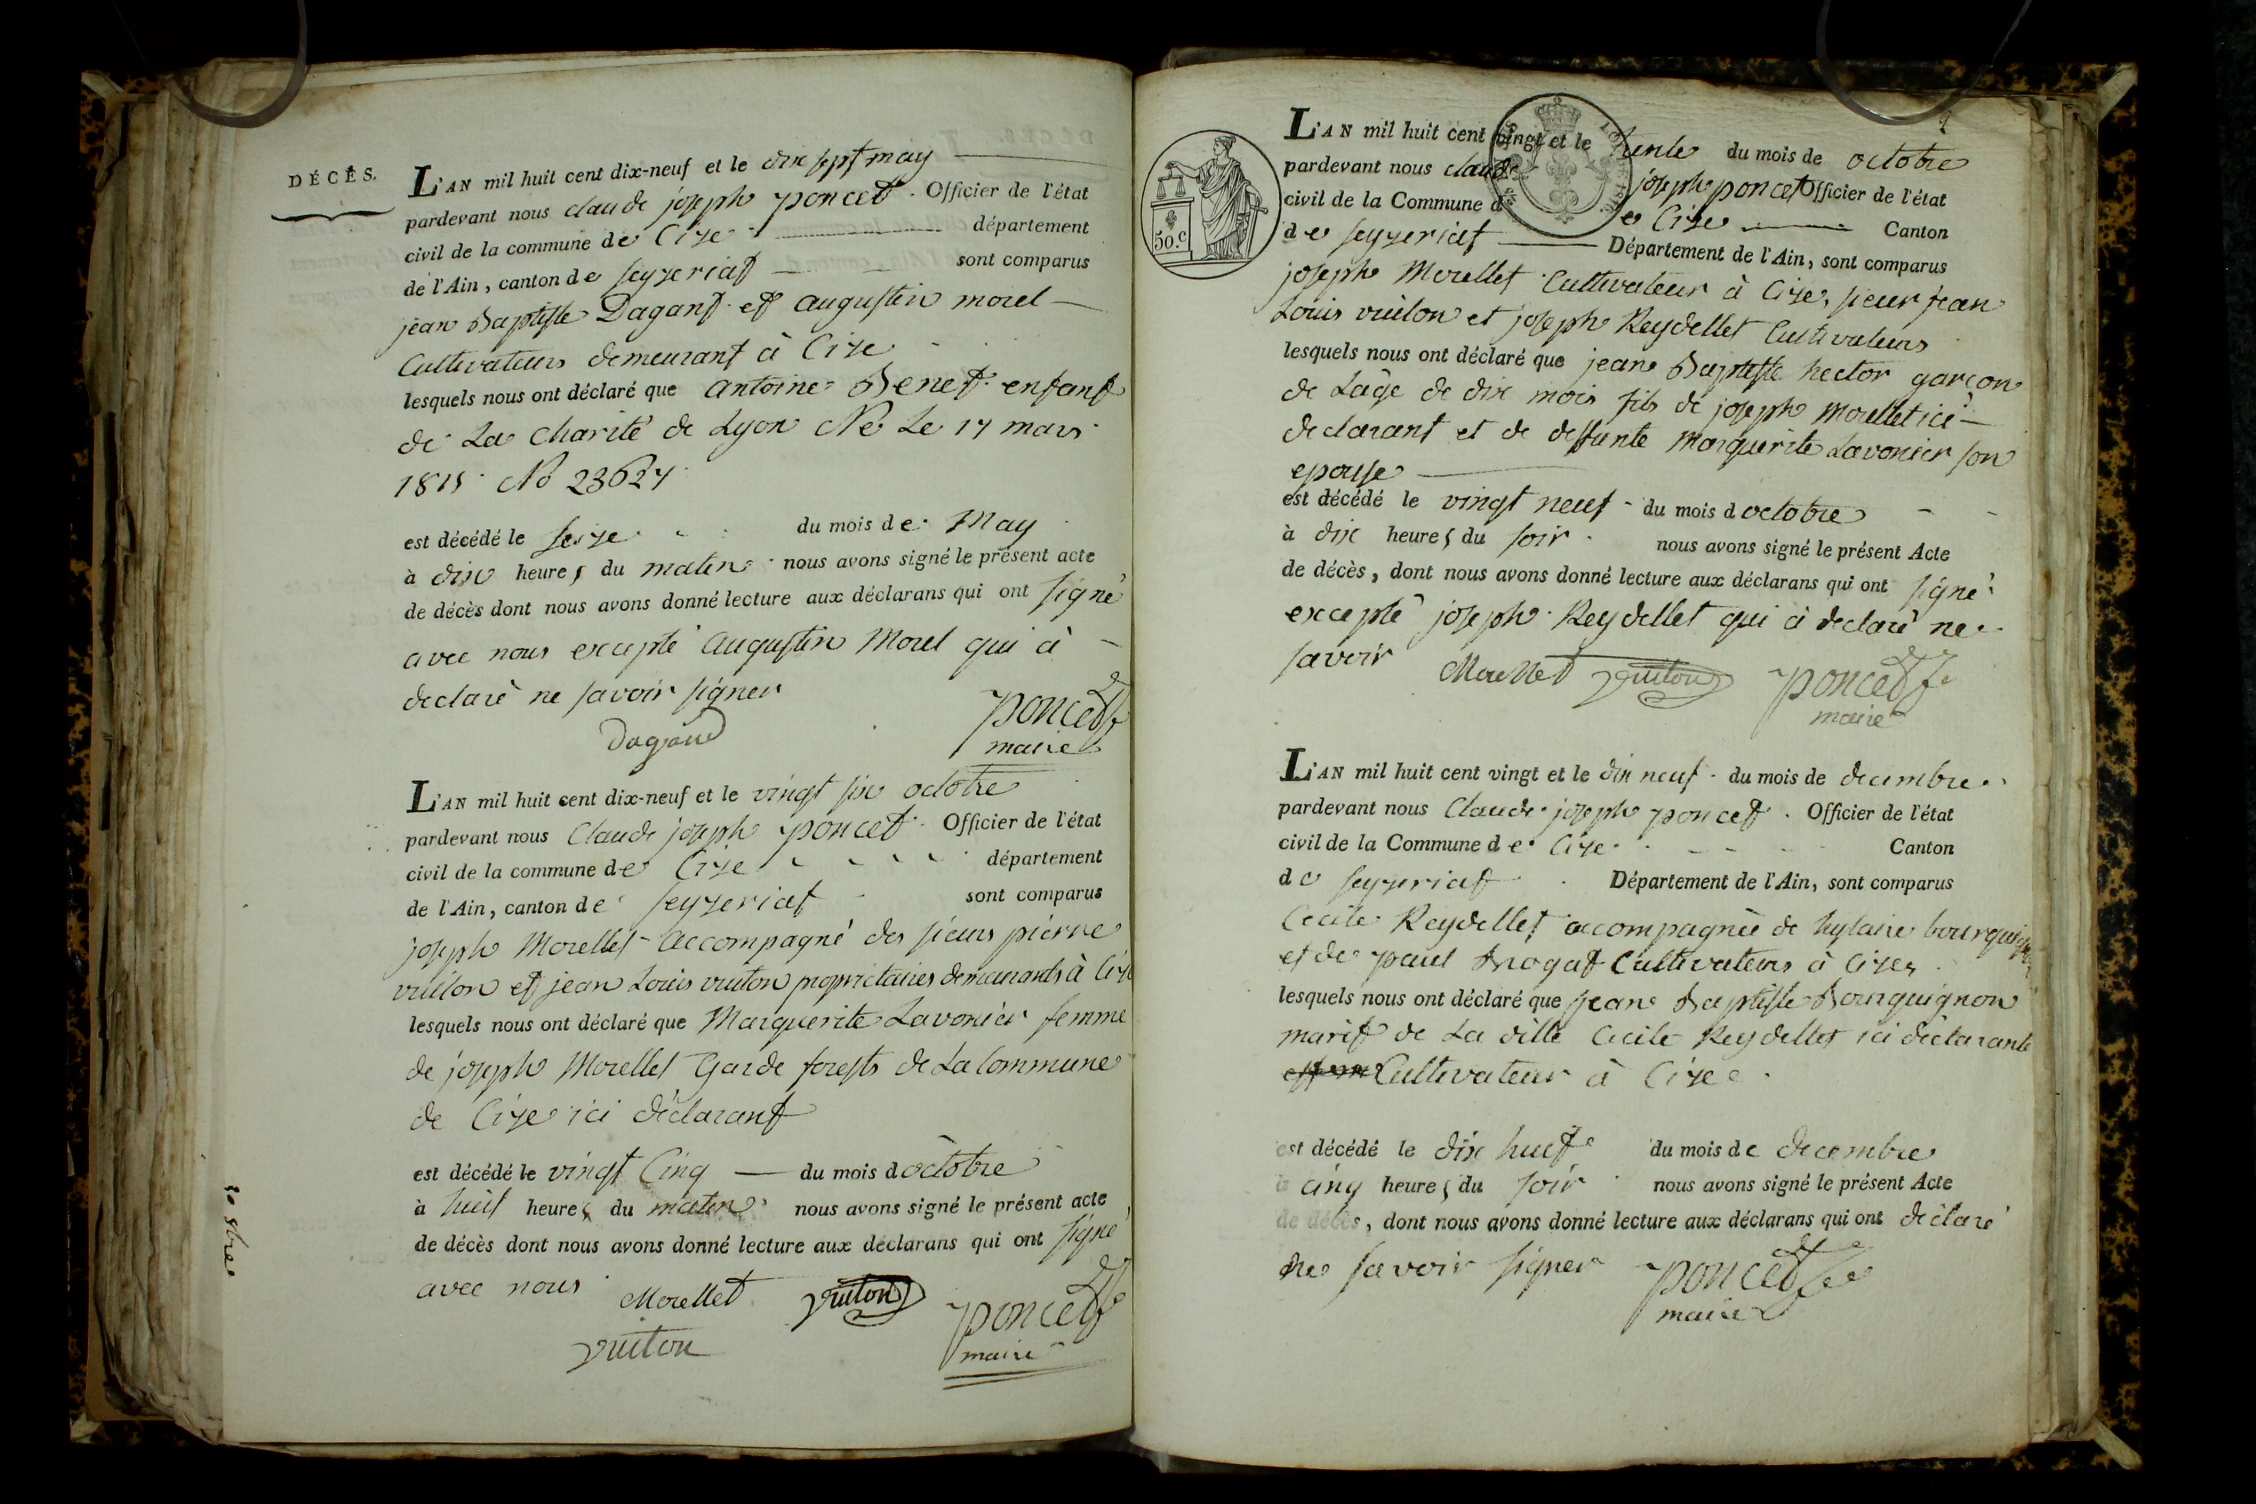 DÉCÈS.
L'AN mil huit cent dix-neuf et le dix sept may
pardevant nous claude joseph poncet Officier de l'état
civil de la commune de Cize département
de l'Ain, canton de seyzeriat sont comparus
jean Baptiste Dagant et augustin morel
Cultivateurs demeurant à Cize
lesquels nous ont déclaré que antoine Benet enfant
de La Charité de Lyon Né Le 17 mars
No
est décédé le seize du mois de May
à dix heures du matin nous avons signé le présent acte
de décès dont nous avons donné lecture aux déclarans qui ont signé
avec nous excepté augustin Morel qui à
declaré ne savoir signer
poncet
maire
L'AN mil huit cent dix-neuf et le vingt six octobre
pardevant nous Claude joseph poncet Officier de l'état
civil de la commune de Cize département
de l'Ain, canton de seyzeriat sont comparus
joseph Morellet accompagné des sieurs pierre
vuiton et jean Louis vuiton proprietaires demeurants à Cize
lesquels nous ont déclaré que Marguerite Lavonier femme
de joseph Morellet Garde forests de La Commune
de Cize ici déclarant
est décédé le vingt Cinq du mois doctobre
à huit heures du matin nous avons signé le présent acte
de décès dont nous avons donné lecture aux déclarans qui ont signé
avec nous Morellet vuiton poncet
vuiton maire
L'AN mil huit cent vingt et le trente du mois de octobre
pardevant nous claude joseph poncet Officier de l'état
civil de la Commune de Cize Canton
de seyzeriat Département de l'Ain, sont comparus
joseph Morellet Cultivateur à Cize, sieur jean
Louis vuiton et joseph Reydellet Cultivateurs
lesquels nous ont déclaré que jean Baptiste hector garcon
de Lâge de dix mois fils de joseph Morellet ici
declarant et de deffunte marguerite Lavonier son
epouse
est décédé le vingt neuf du mois doctobre
à dix heures du soir nous avons signé le présent Acte
de décès, dont nous avons donné lecture aux déclarans qui ont signé
excepté joseph Reydellet qui à declaré ne
savoir Morellet vuiton poncet
maire
50.c
L'AN mil huit cent vingt et le dix neuf du mois de decembre
pardevant nous Claude joseph poncet Officier de l'état
civil de la Commune de Cize Canton
de seyzeriat Département de l'Ain, sont comparus
Cecile Reydellet accompagnée de hylaire bourguignon
et de paul Brogat Cultivateurs à Cize
lesquels nous ont déclaré que jean Baptiste Bourguignon
marit de La ditte Cecile Reydellet ici déclarante
Cultivateur à Cize
est décédé le dix huit du mois de decembre
à cinq heures du soir nous avons signé le présent Acte
de décès, dont nous avons donné lecture aux déclarans qui ont déclaré
ne savoir signer poncet
maire